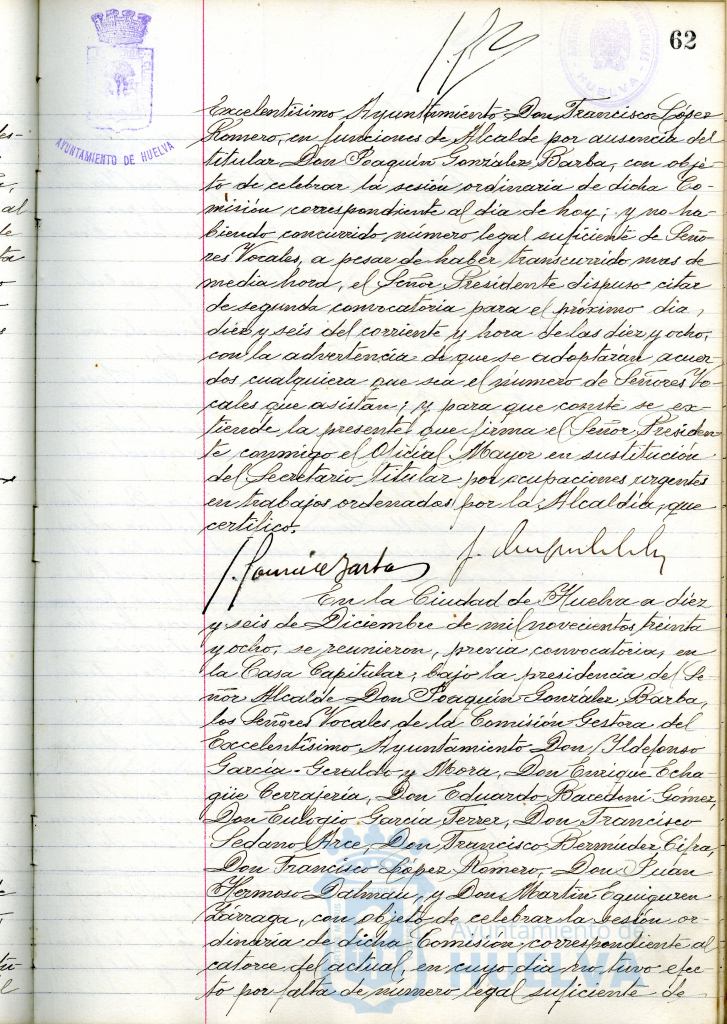 62
AYUNTAMIENTO DE HUELVA
HUELVA
Excelentísimo Ayuntamiento Don Francisco López
Romero, en funciones de Alcalde por ausencia del
titular Don Joaquín González Barba, con obje-
to de celebrar la sesión ordinaria de dicha Co-
misión correspondiente al día de hoy; y no ha-
biendo concurrido número legal suficiente de Seño-
res Vocales, a pesar de haber transcurrido mas de
media hora, el Señor Presidente dispuso citar
de segunda convocatoria para el próximo dia,
diez y seis del corriente y hora de las diez y ocho,
con la advertencia de que se adoptaran acuer-
dos cualquiera que sea el número de Señores Vo-
cales que asistan; y para que conste se ex-
tiende la presente que firma el Señor Presiden-
te conmigo el Oficial Mayor en sustitución
del Secretario titular por ocupaciones urgentes
en trabajos ordenados por la Alcaldía, que
certifico.
En la Ciudad de Huelva a diez
y seis de Diciembre de mil novecientos treinta
y ocho, se reunieron, previa convocatoria, en
la Casa Capitular, bajo la presidencia del Se-
ñor Alcalde Don Joaquín González Barba,
los Señores Vocales de la Comisión Gestora del
Excelentísimo Ayuntamiento Don Ildefonso
García-Geraldo y Mora, Don Enrique Echa-
güe Cerrajería, Don Eduardo Bacedoni Gómez,
Don Eulogio García Ferrer, Don Francisco
Sedano Arce, Don Francisco Bermúdez Cifra,
Don Francisco López Romero, Don Juan
Hermoso Dalmau, y Don Martín Eguiguren
Lárraga, con objeto de celebrar la sesión or-
dinaria de dicha Comisión correspondiente al
catorce del actual, en cuyo dia no tuvo efec-
to por falta de número legal suficiente de
Ayuntamiento de
HUELVA